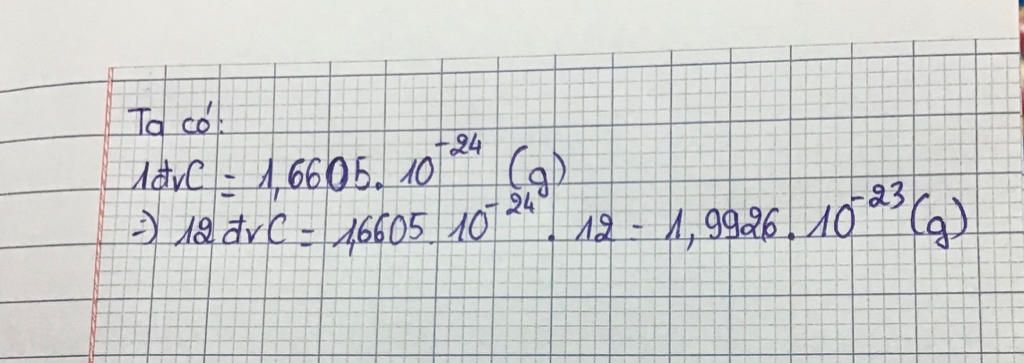 Ta có:
1đvC = 1,6605. 10⁻²⁴ (g)
=) 12 đvC = 1,6605. 10⁻²⁴ . 12 = 1,9926. 10⁻²³ (g)